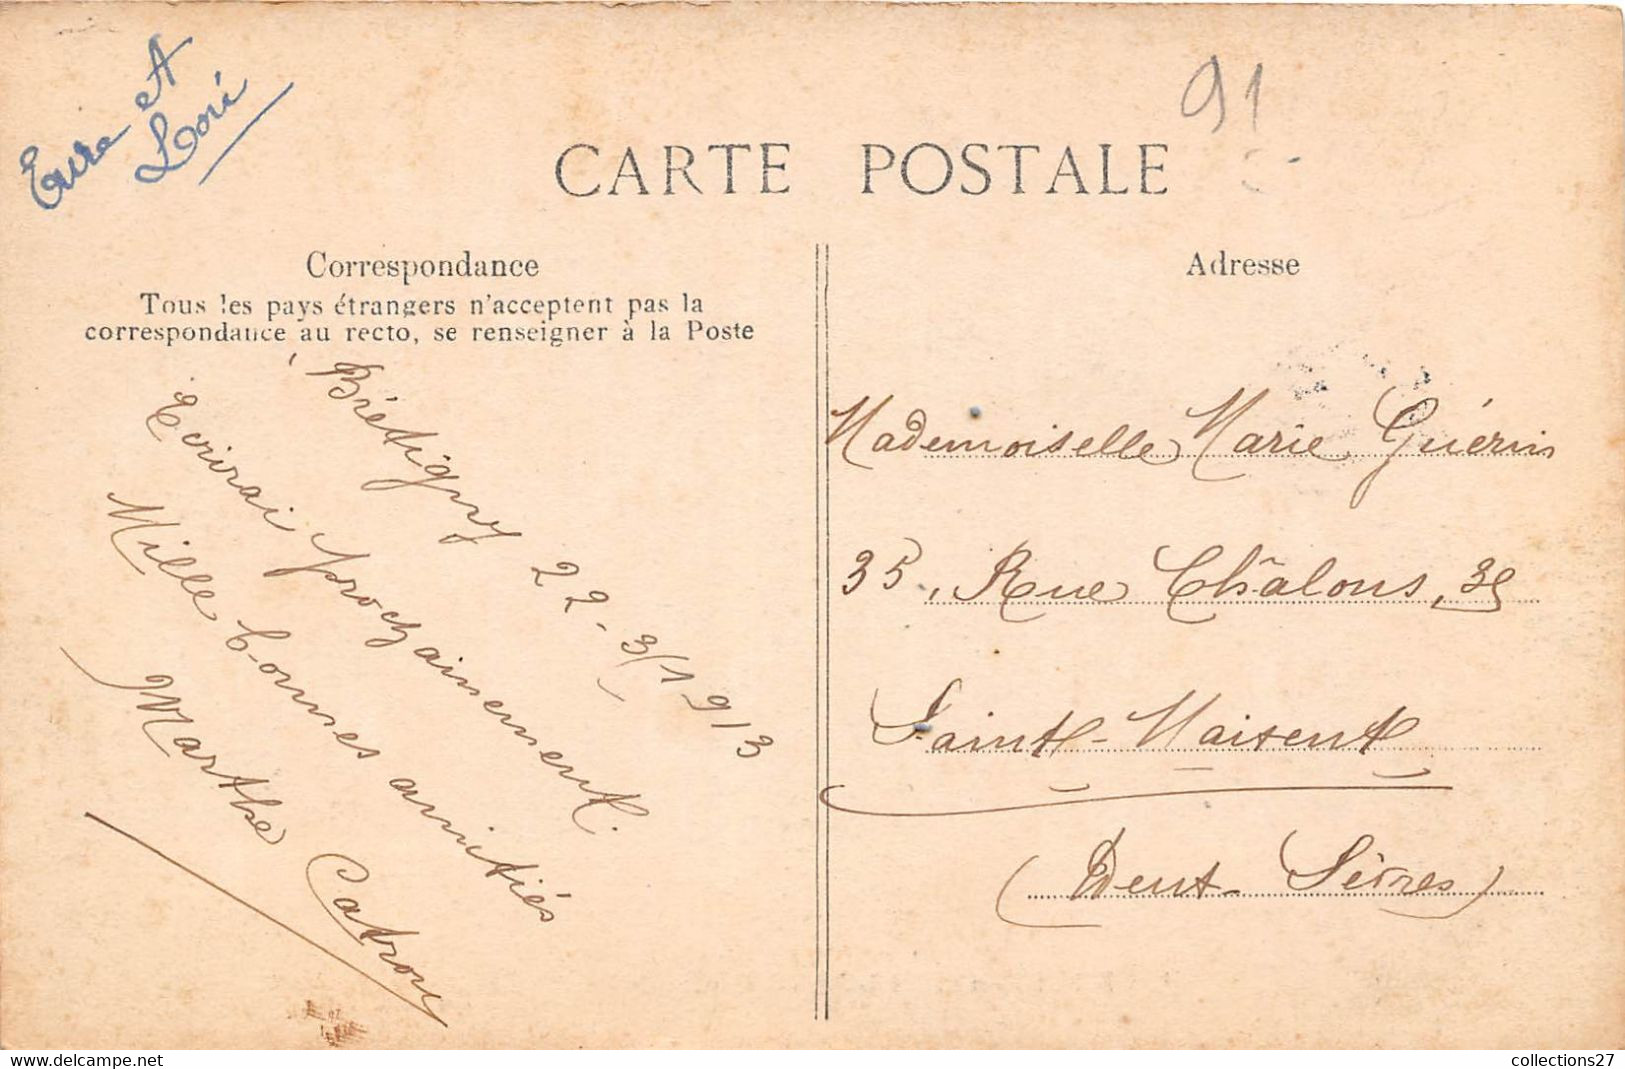 Eure et
Loré
91
CARTE POSTALE
Correspondance
Tous les pays étrangers n'acceptent pas la
correspondance au recto, se renseigner à la Poste
Brétigny 22-3/1913
Ecrirai prochainement.
Mille bonnes amitiés
Marthe Catroux
Adresse
Mademoiselle Marie Guérin
35, Rue Châlons, 35
Saint-Maixent
(Deux Sèvres)
collections27